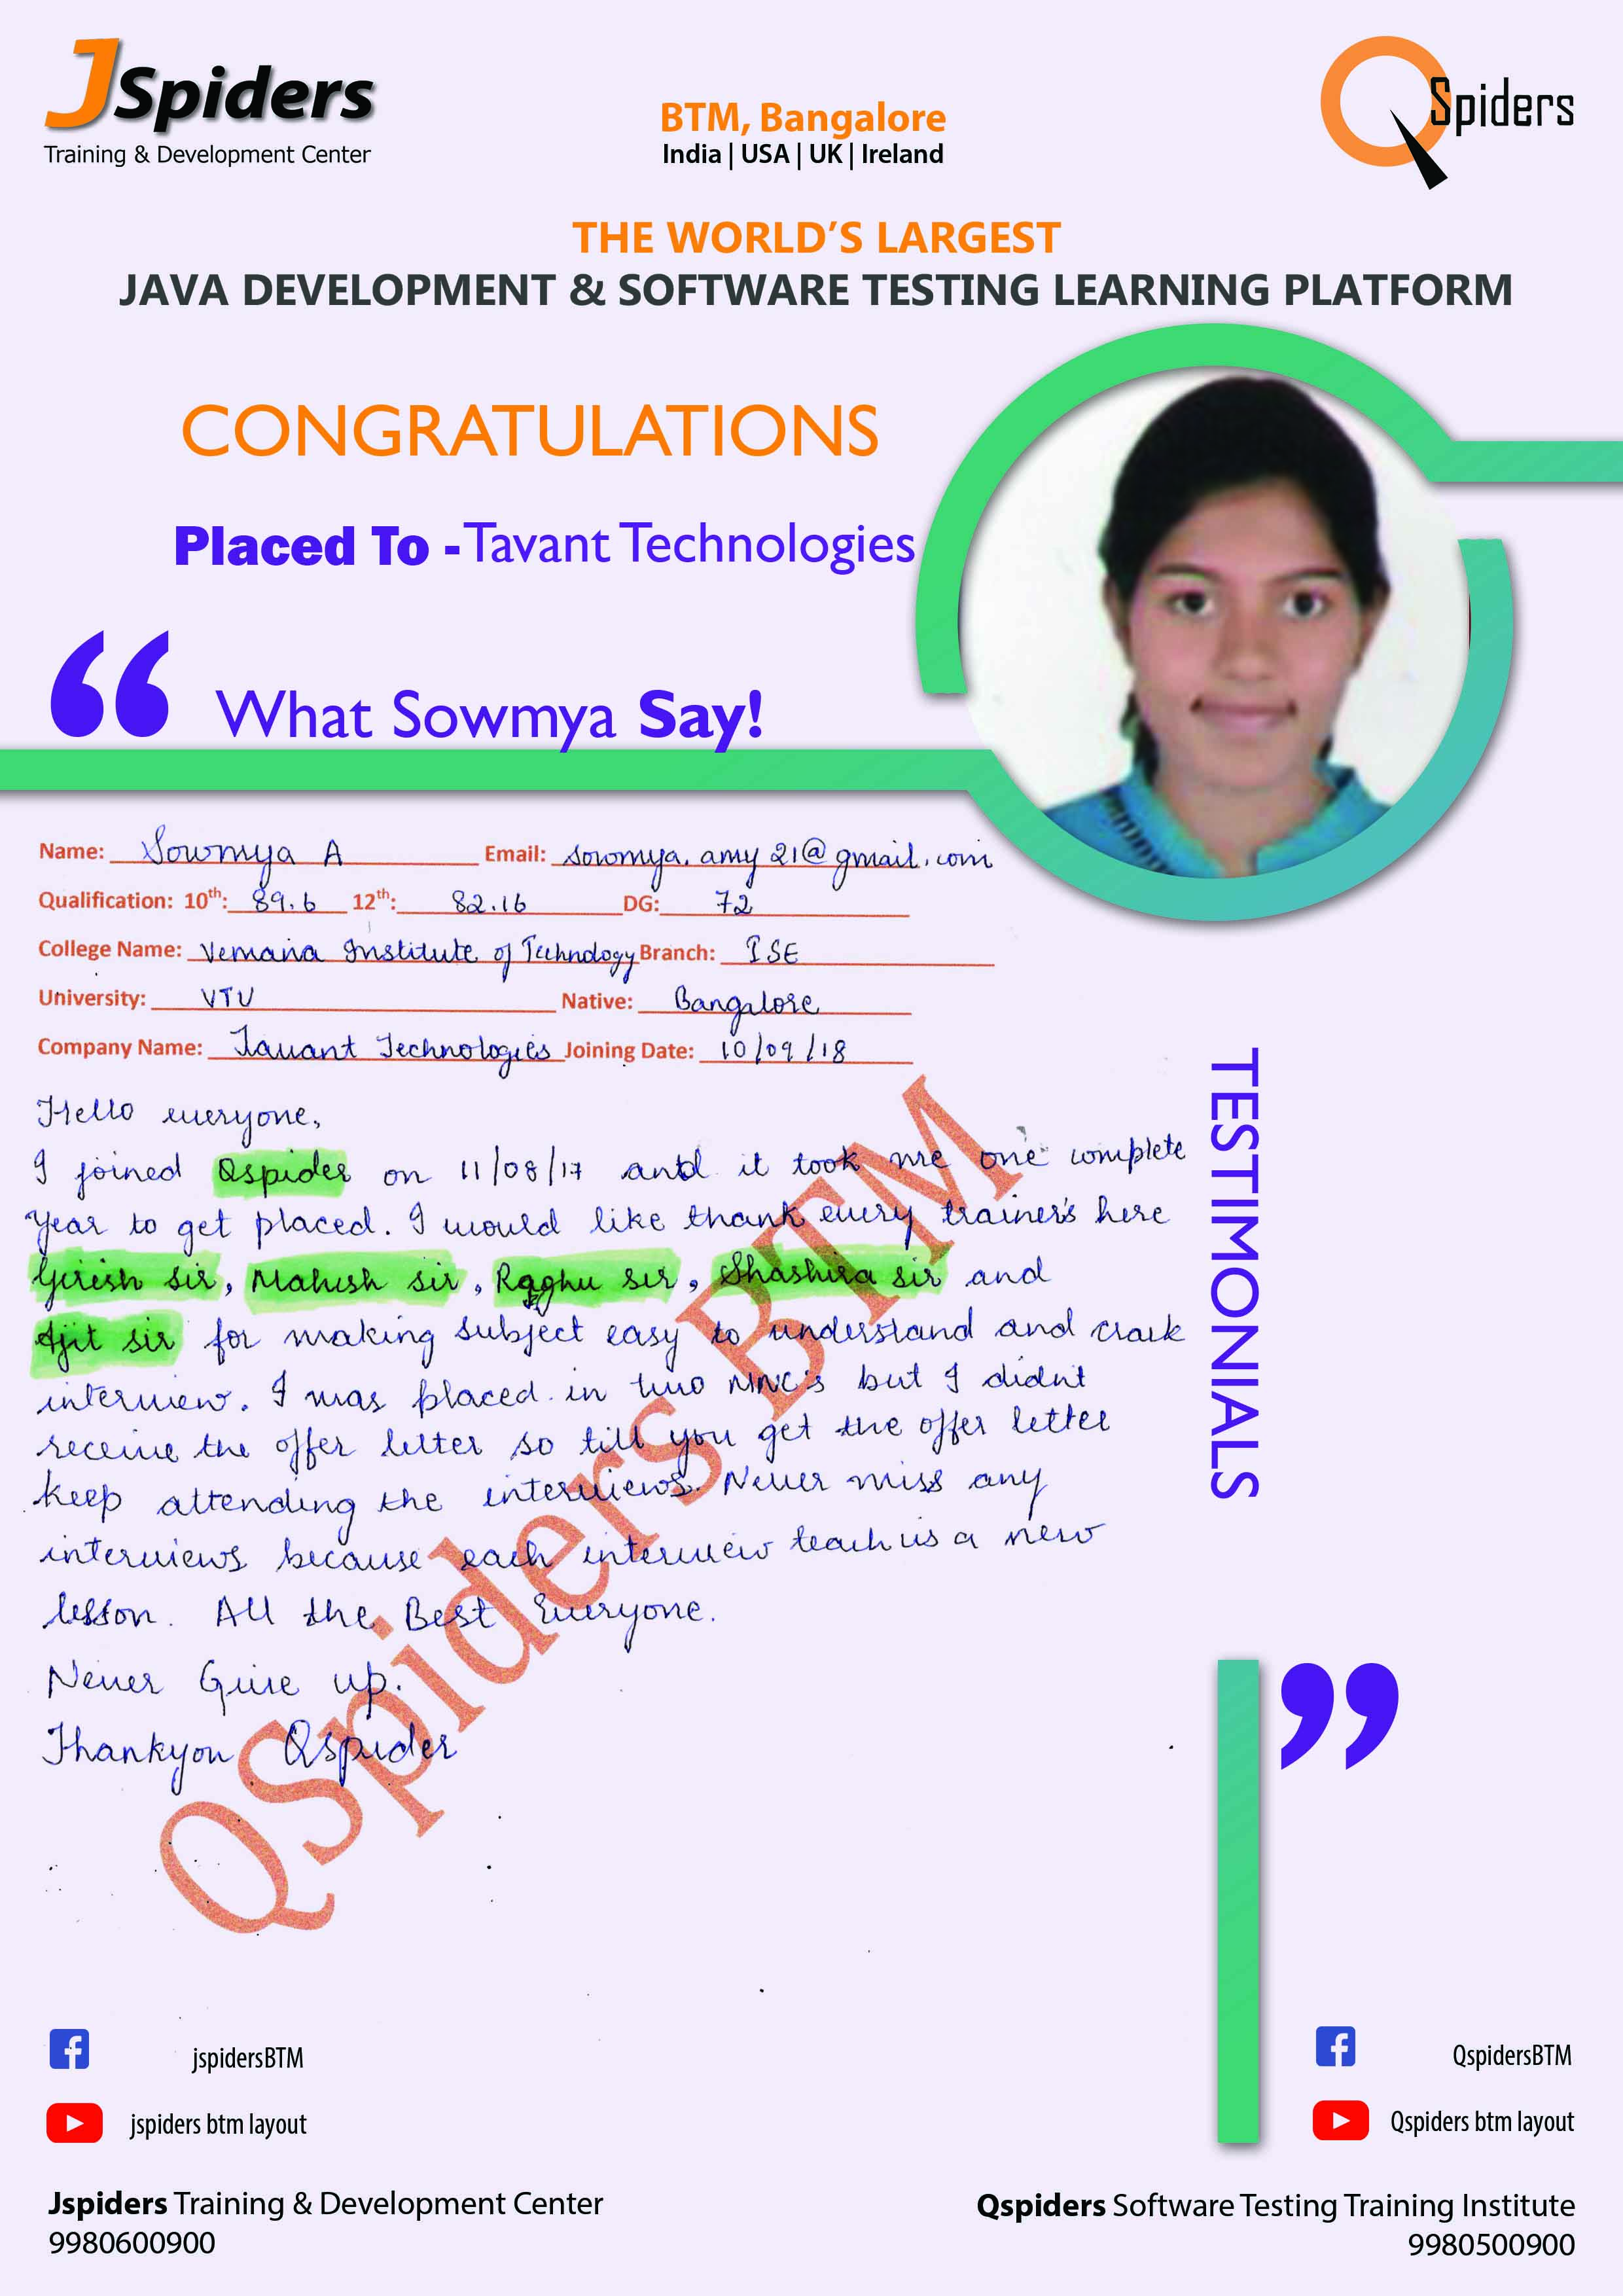 JSpiders
Training & Development Center
BTM, Bangalore
India | USA | UK | Ireland
QSpiders
THE WORLD'S LARGEST
JAVA DEVELOPMENT & SOFTWARE TESTING LEARNING PLATFORM
CONGRATULATIONS
Placed To - Tavant Technologies
“ What Sowmya Say!
Name: Sowmya A Email: sowmya.amy21@gmail.com
Qualification: 10th: 89.6 12th: 82.16 DG: 72
College Name: Vemana Institute of Technology Branch: ISE
University: VTU Native: Bangalore
Company Name: Tavant Technologies Joining Date: 10/09/18
Hello everyone,
I joined Qspider on 11/08/17 and it took me one complete
year to get placed. I would like thank every trainer's here
Girish sir, Mahesh sir, Raghu sir, Shashira sir and
Ajit sir for making subject easy to understand and crack
interview. I was placed in two MNC's but I didnt
receive the offer letter so till you get the offer letter
keep attending the interviews. Never miss any
interviews because each interview teach us a new
lesson. All the Best Everyone.
Never Give up.
Thankyou Qspider
QSpiders BTM
TESTIMONIALS
”
jspidersBTM
jspiders btm layout
QspidersBTM
Qspiders btm layout
Jspiders Training & Development Center
9980600900
Qspiders Software Testing Training Institute
9980500900